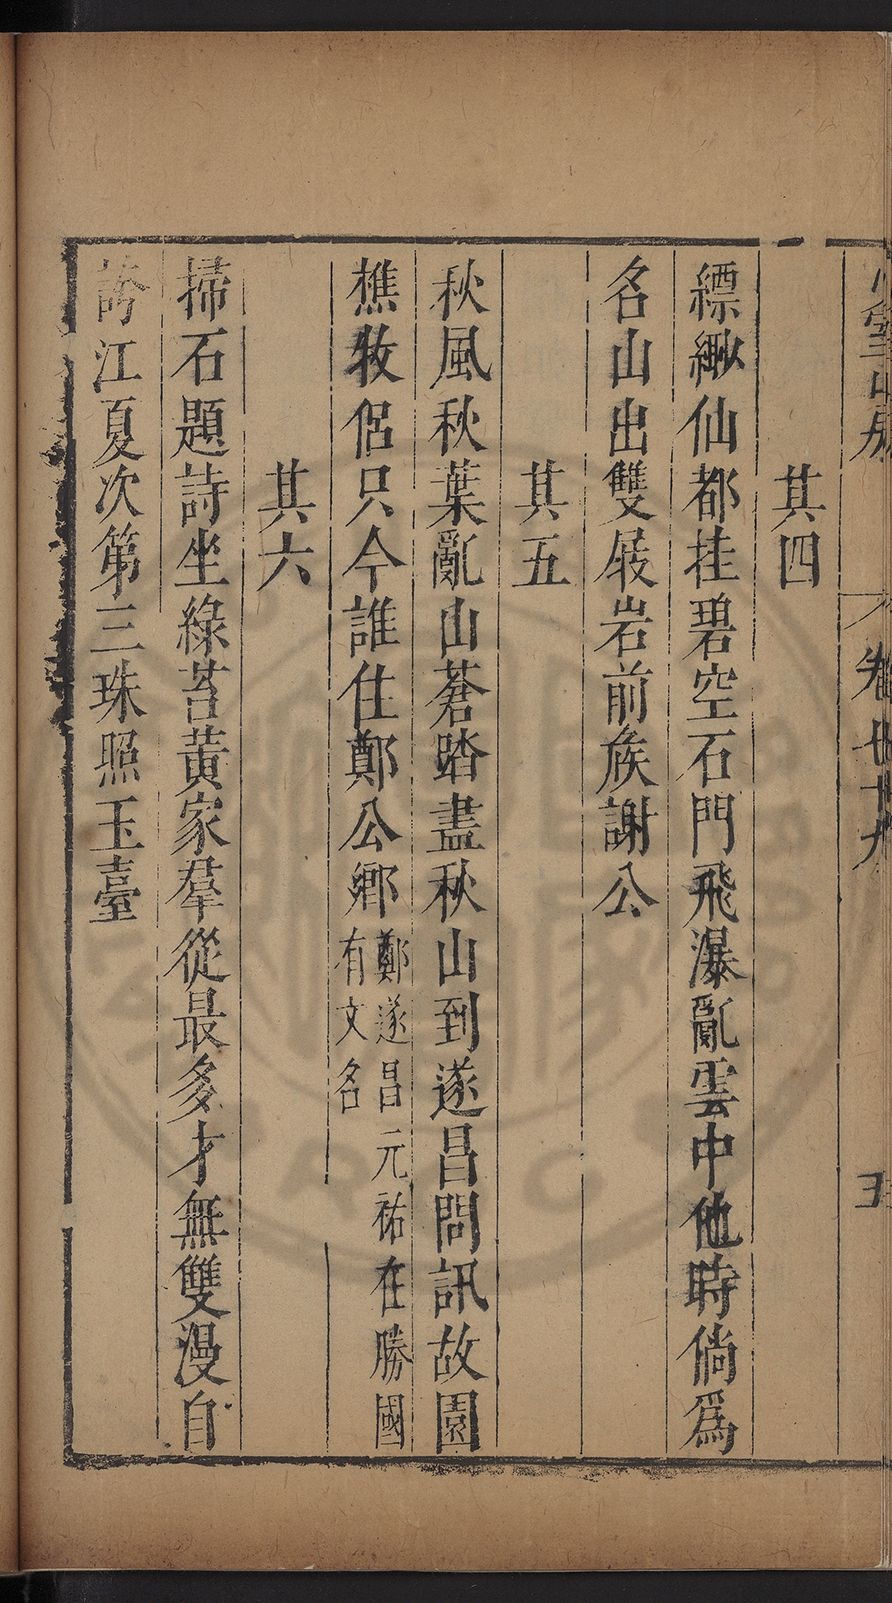 卷七十九
其四
縹緲仙都挂碧空石門飛瀑亂雲中他時倘爲
名山出雙屐岩前族謝公
其五
秋風秋葉亂山蒼踏盡秋山到遂昌問訊故園
樵牧侶只今誰住鄭公鄉鄭遂昌元祐在勝國
有文名
其六
掃石題詩坐綠苔黃家羣從最多才無雙漫自
誇江夏次第三珠照玉臺